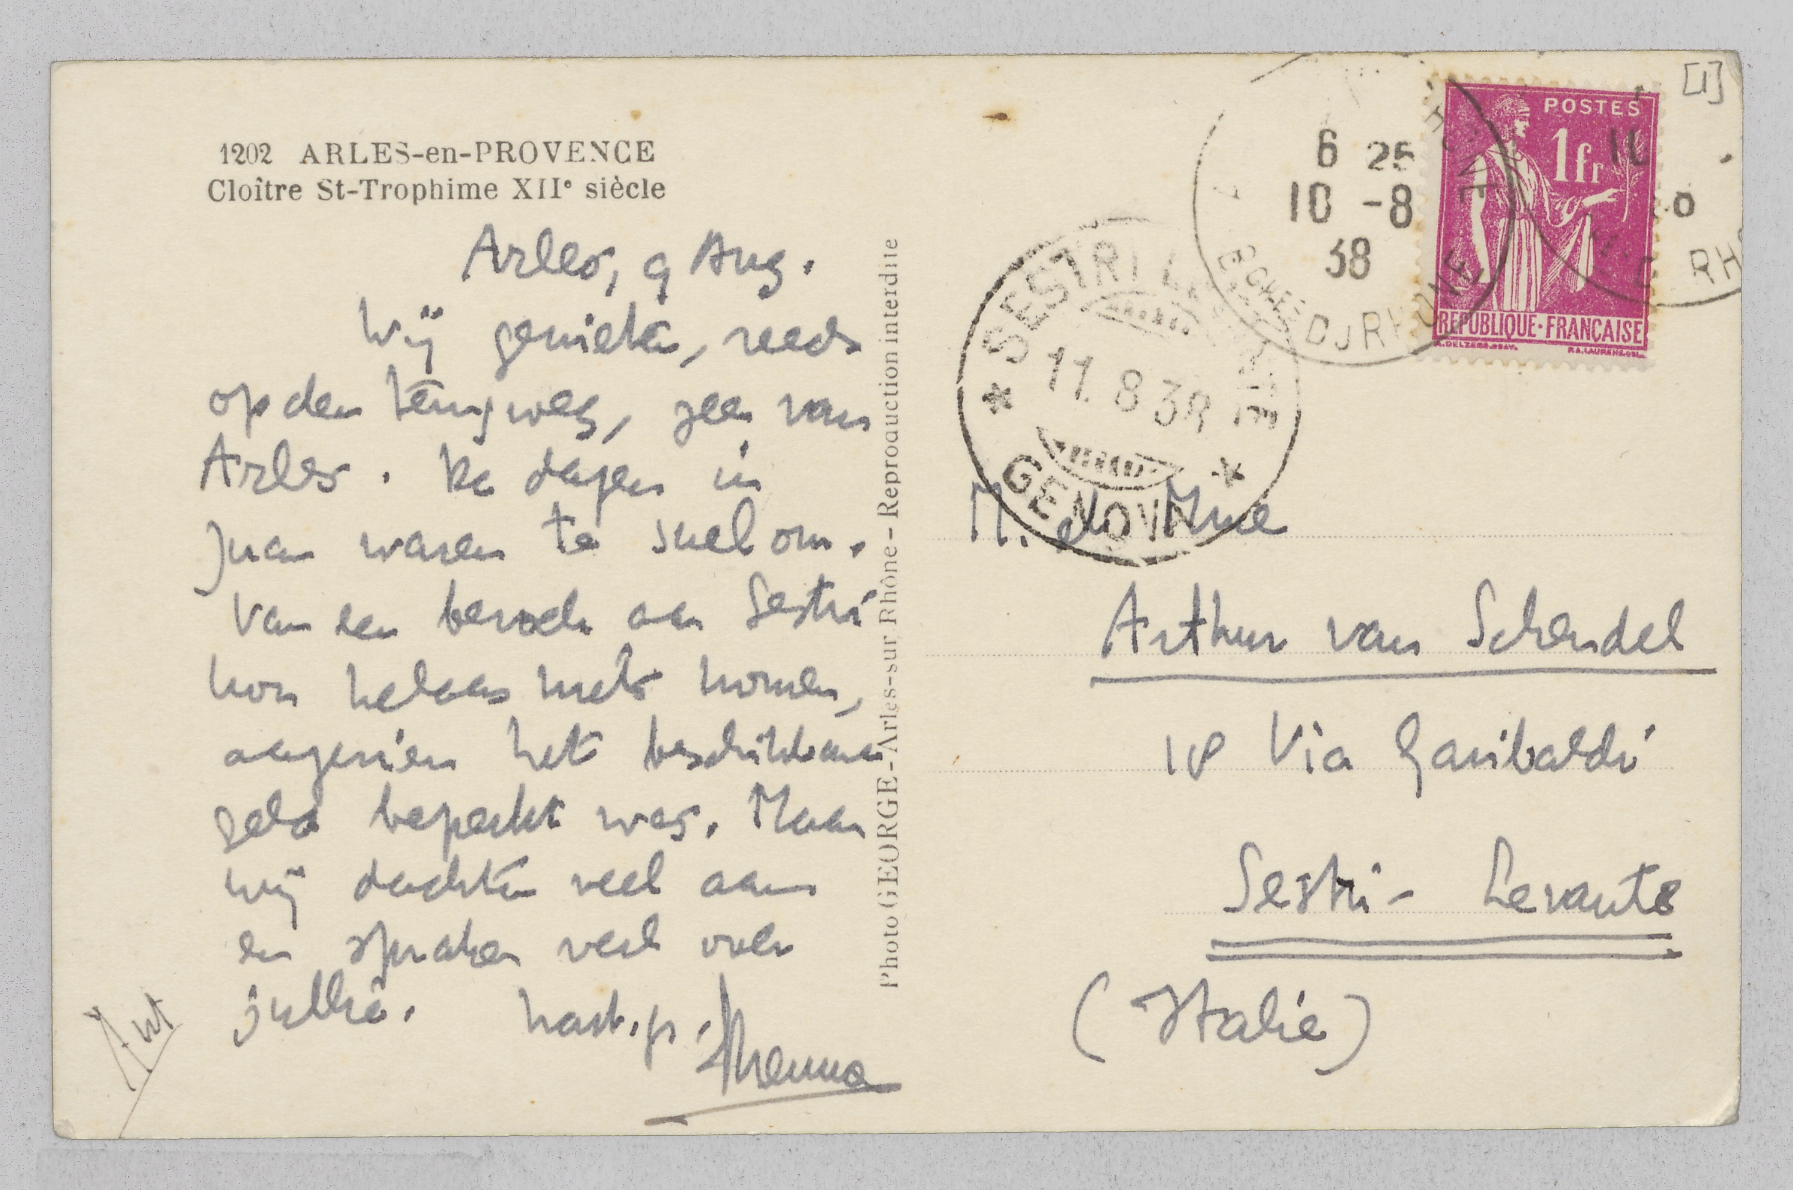 1202 ARLES-en-PROVENCE
Cloître St-Trophime XIIe siècle
Arles, 9 Aug.
Wij genieten, reeds
op den terugweg, zeer van
Arles. De dagen in
Juan waren te snel om.
Van een bezoek aan Sestri
kon helaas niets komen,
aangezien het beschikbare
geld beperkt was. Maar
wij dachten veel aan
en spraken veel over
jullie. hart. gr.
Menno
Ant
Photo GEORGE - Arles-sur Rhône - Reproduction interdite
[1]
POSTES
1fr
REPUBLIQUE·FRANÇAISE
6 25
10 -8
38
11
SESTRI LEVANTE
11.8 38
GENOVA
M. et Mme
Arthur van Schendel
18 Via Garibaldi
Sestri - Levante
(Italië)